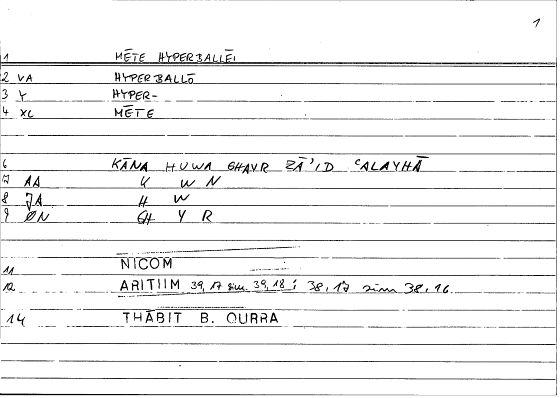 1
1 MĒTE HYPERBALLĒI
2 VA HYPERBALLŌ
3 Y HYPER-
4 XL MĒTE
6 KĀNA HUWA GHAYR ZĀ'ID ʿALAYHĀ
7 AA K W N
8 JA H W
9 ØN GH Y R
11 NICOM
12 ARITIIM 39,17 sim 39,18; 38,17 sim 38,16
14 THĀBIT B. QURRA